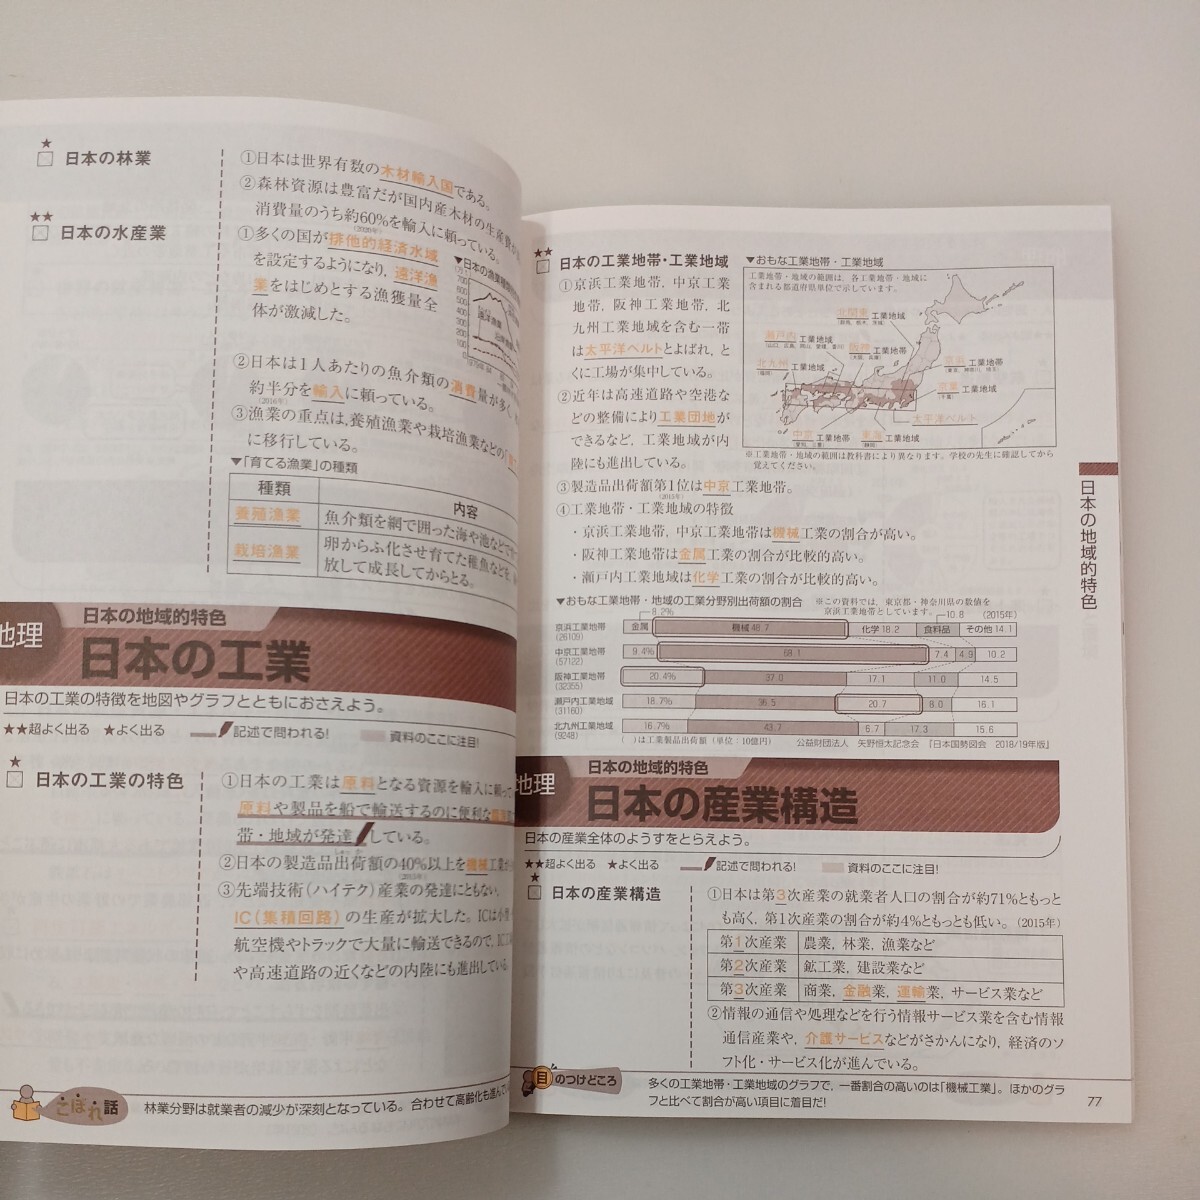 ★
日本の林業
①日本は世界有数の木材輸入国である。
②森林資源は豊富だが国内産木材の生産費が
消費量のうち約60%を輸入に頼っている。
(2020年)
★★
日本の水産業
①多くの国が排他的経済水域
を設定するようになり，遠洋漁
業をはじめとする漁獲量全
体が激減した。
700
600
500
400
300
200
100
0
遠洋漁業
②日本は1人あたりの魚介類の消費量が多く，
約半分を輸入に頼っている。
(2016年)
③漁業の重点は，養殖漁業や栽培漁業などの「
に移行している。
▼「育てる漁業」の種類
種類
内容
養殖漁業
魚介類を網で囲った海や池などで
栽培漁業
卵からふ化させ育てた稚魚などを，
放して成長してからとる。
地理
日本の地域的特色
日本の工業
日本の工業の特徴を地図やグラフとともにおさえよう。
★★超よく出る ★よく出る 記述で問われる! 資料のここに注目!
★
日本の工業の特色
①日本の工業は原料となる資源を輸入に頼って
原料や製品を船で輸送するのに便利な
帯・地域が発達している。
②日本の製造品出荷額の40%以上を機械工業が
(2015年)
③先端技術(ハイテク)産業の発達にともない，
IC(集積回路)の生産が拡大した。ICは小
航空機やトラックで大量に輸送できるので，IC
や高速道路の近くなどの内陸にも進出している
こぼれ話
林業分野は就業者の減少が深刻となっている。合わせて高齢化も進んで
★★
日本の工業地帯・工業地域
①京浜工業地帯，中京工業
地帯，阪神工業地帯，北
九州工業地域を含む一帯
は太平洋ベルトとよばれ，と
くに工場が集中している。
②近年は高速道路や空港な
どの整備により工業団地が
できるなど，工業地域が内
陸にも進出している。
▼おもな工業地帯・工業地域
工業地帯・地域の範囲は，各工業地帯・地域に
含まれる都道府県単位で示しています。
北関東工業地域
(群馬，栃木，茨城)
瀬戸内工業地域
(山口，広島，岡山，愛媛，香川)
阪神工業地帯
(大阪，兵庫)
北九州工業地域
(福岡)
京浜工業地帯
(東京，神奈川，埼玉)
京葉工業地域
(千葉)
太平洋ベルト
中京工業地帯
(愛知，三重)
東海工業地域
(静岡)
※工業地帯・地域の範囲は教科書により異なります。学校の先生に確認してから
覚えてください。
③製造品出荷額第1位は中京工業地帯。
(2015年)
④工業地帯・工業地域の特徴
・京浜工業地帯，中京工業地帯は機械工業の割合が高い。
・阪神工業地帯は金属工業の割合が比較的高い。
・瀬戸内工業地域は化学工業の割合が比較的高い。
▼おもな工業地帯・地域の工業分野別出荷額の割合
※この資料では，東京都・神奈川県の数値を
京浜工業地帯としています。
8.2%
10.8 (2015年)
京浜工業地帯 金属 機械 48.7 化学 18.2 食料品 その他 14.1
(26109)
中京工業地帯 9.4% 68.1 7.4 4.9 10.2
(57122)
阪神工業地帯 20.4% 37.0 17.1 11.0 14.5
(32355)
瀬戸内工業地域 18.7% 36.5 20.7 8.0 16.1
(31160)
北九州工業地域 16.7% 43.7 6.7 17.3 15.6
(9248)
( )は工業製品出荷額(単位：10億円) 公益財団法人 矢野恒太記念会 『日本国勢図会 2018/19年版』
地理
日本の地域的特色
日本の産業構造
日本の産業全体のようすをとらえよう。
★★超よく出る ★よく出る 記述で問われる! 資料のここに注目!
★
日本の産業構造
①日本は第3次産業の就業者人口の割合が約71%ともっと
も高く，第1次産業の割合が約4%ともっとも低い。(2015年)
第1次産業 農業，林業，漁業など
第2次産業 鉱工業，建設業など
第3次産業 商業，金融業，運輸業，サービス業など
②情報の通信や処理などを行う情報サービス業を含む情報
通信産業や，介護サービスなどがさかんになり，経済のソ
フト化・サービス化が進んでいる。
目のつけどころ
多くの工業地帯・工業地域のグラフで，一番割合の高いのは「機械工業」。ほかのグラ
フと比べて割合が高い項目に着目だ!
77
日本の地域的特色